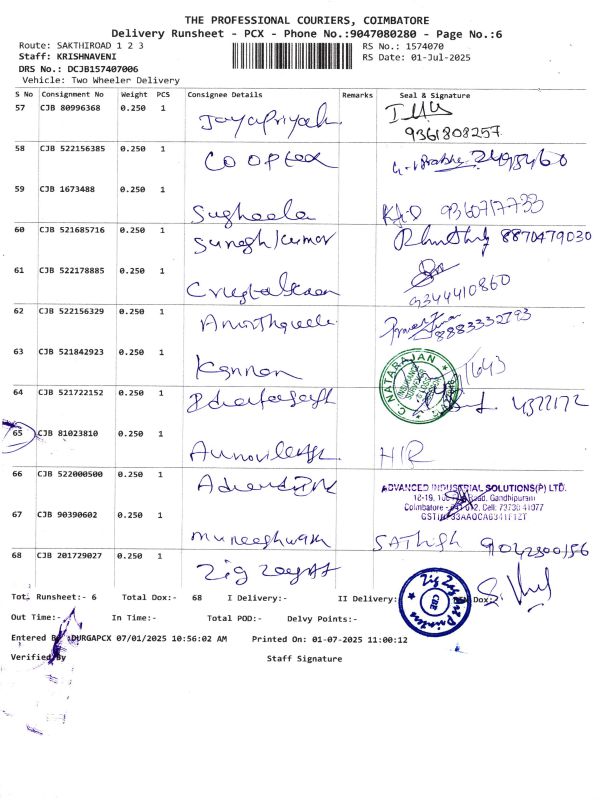 THE PROFESSIONAL COURIERS, COIMBATORE
Delivery Runsheet - PCX - Phone No.:9047080280 - Page No.:6
Route: SAKTHIROAD 1 2 3 RS No.: 1574070
Staff: KRISHNAVENI RS Date: 01-Jul-2025
DRS No.: DCJB157407006
Vehicle: Two Wheeler Delivery
S No Consignment No Weight PCS Consignee Details Remarks Seal & Signature
57 CJB 80996368 0.250 1 Jayapriyah
9361808257
58 CJB 522156385 0.250 1 CO OPtex
59 CJB 1673488 0.250 1 Susheela 9360717733
60 CJB 521685716 0.250 1 Suresh kumar 8870479030
61 CJB 522178885 0.250 1
9344410860
62 CJB 522156329 0.250 1 8883332793
63 CJB 521842923 0.250 1 Kannan C. NATARAJAN
64 CJB 521722152 0.250 1 4322172
65 CJB 81023810 0.250 1 H/R
66 CJB 522000500 0.250 1 ADVANCED INDUSTRIAL SOLUTIONS(P) LTD.
Road, Gandhipuram
Coimbatore - 641 012, Cell: 73730 41077
67 CJB 90390602 0.250 1 Muneeshwar SATHISH 9042300156
68 CJB 201729027 0.250 1 Zig Zag
Tot. Runsheet:- 6 Total Dox:- 68 I Delivery:- II Delivery: Dox:
Out Time:- In Time:- Total POD:- Delvy Points:-
Entered By :DURGAPCX 07/01/2025 10:56:02 AM Printed On: 01-07-2025 11:00:12
Verified By Staff Signature